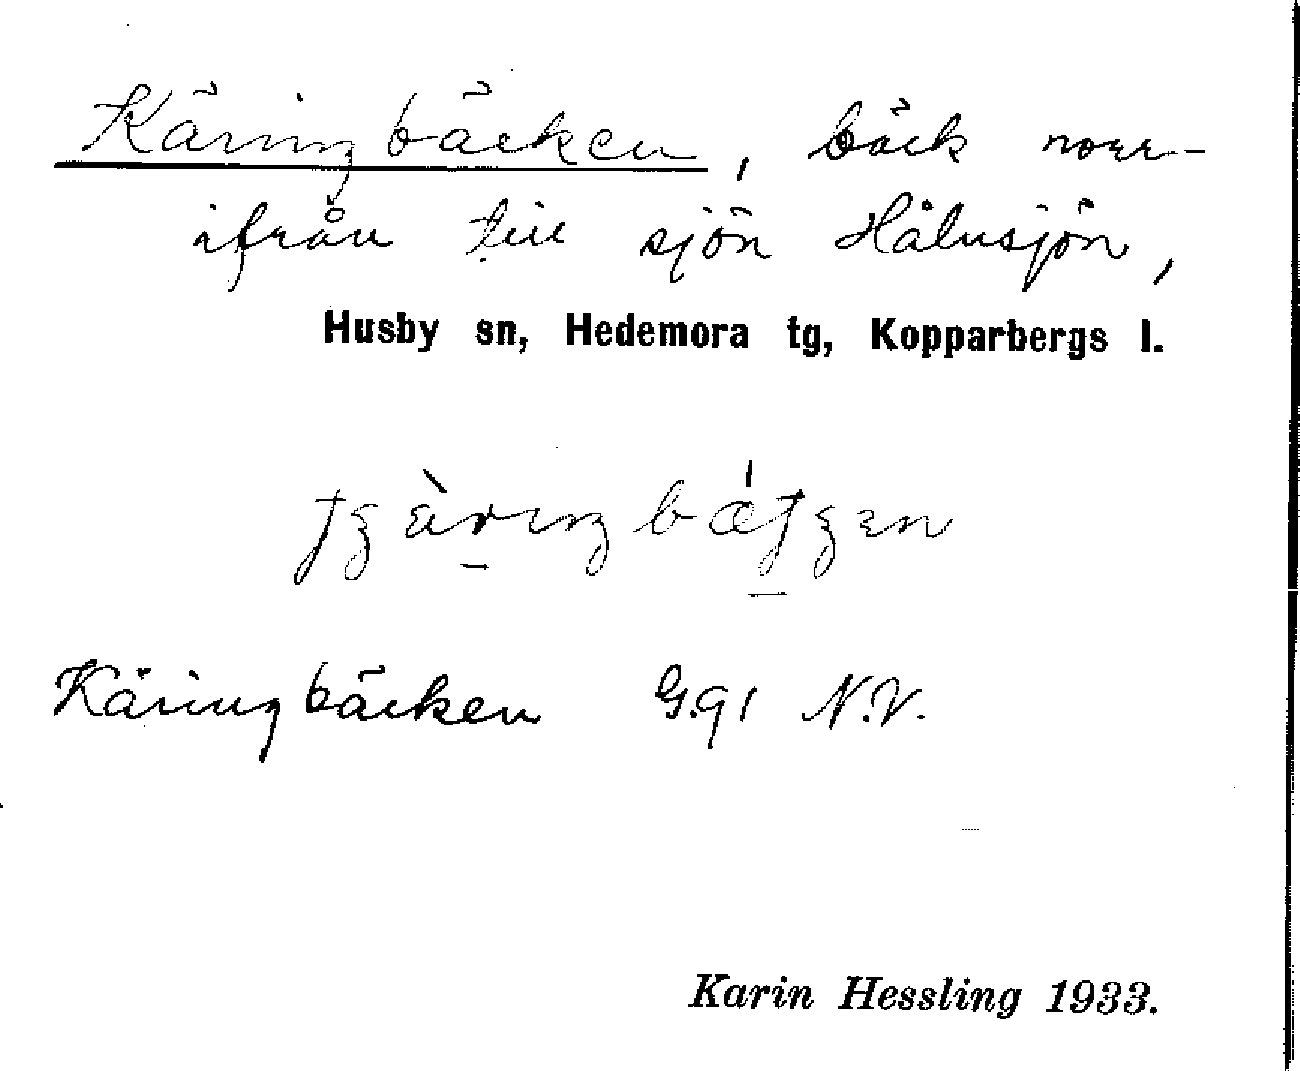 Käringbäcken, bäck norr-
ifrån till sjön Hålnsjön,
Husby sn, Hedemora tg, Kopparbergs l.
Käringbäcken G.91 N.V.
Karin Hessling 1933.